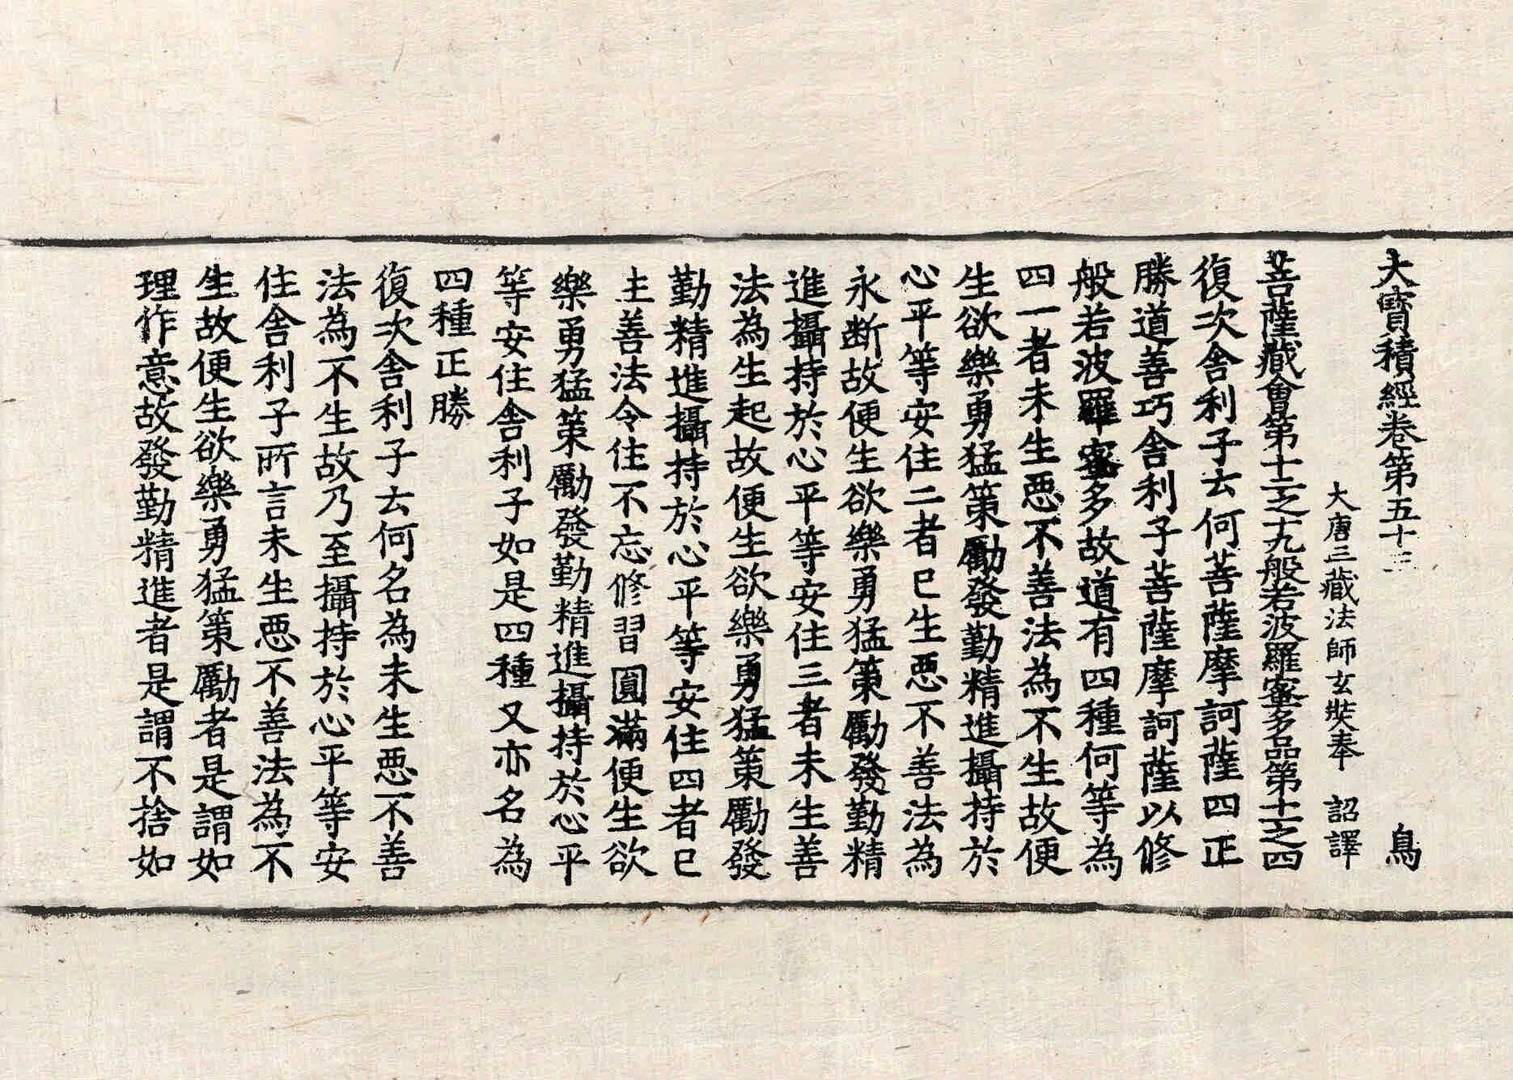 大寶積經卷第五十三 鳥
大唐三藏法師玄奘奉 詔譯
菩薩藏會第十二之十九般若波羅蜜多品第十一之四
復次舍利子云何菩薩摩訶薩四正
勝道善巧舍利子菩薩摩訶薩以修
般若波羅蜜多故道有四種何等為
四一者未生惡不善法為不生故便
生欲樂勇猛策勵發勤精進攝持於
心平等安住二者已生惡不善法為
永斷故便生欲樂勇猛策勵發勤精
進攝持於心平等安住三者未生善
法為生起故便生欲樂勇猛策勵發
勤精進攝持於心平等安住四者已
生善法令住不忘修習圓滿便生欲
樂勇猛策勵發勤精進攝持於心平
等安住舍利子如是四種又亦名為
四種正勝
復次舍利子云何名為未生惡不善
法為不生故乃至攝持於心平等安
住舍利子所言未生惡不善法為不
生故便生欲樂勇猛策勵者是謂如
理作意故發勤精進者是謂不捨如